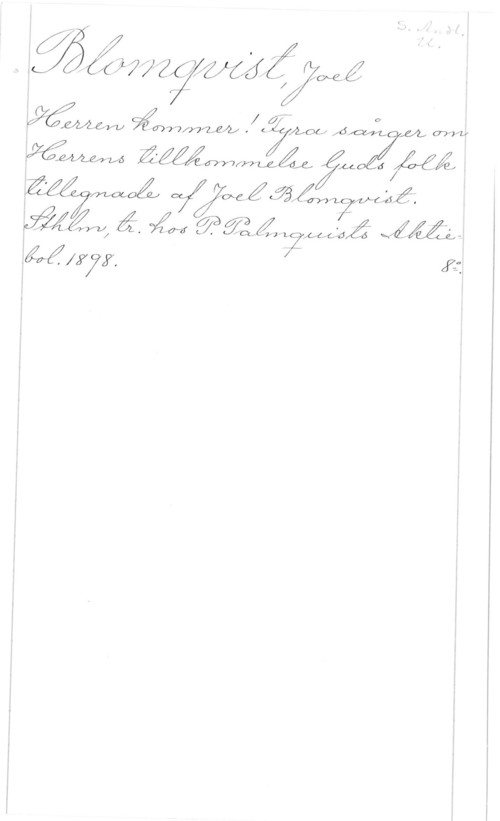 S. Andl.
26.
Blomqvist, Joel
Herren kommer! Fyra sånger om
Herrens tillkommelse Guds folk
tillegnade af Joel Blomqvist.
Sthlm, tr. hos P. Palmquists Aktie-
bol. 1898. 8:o.